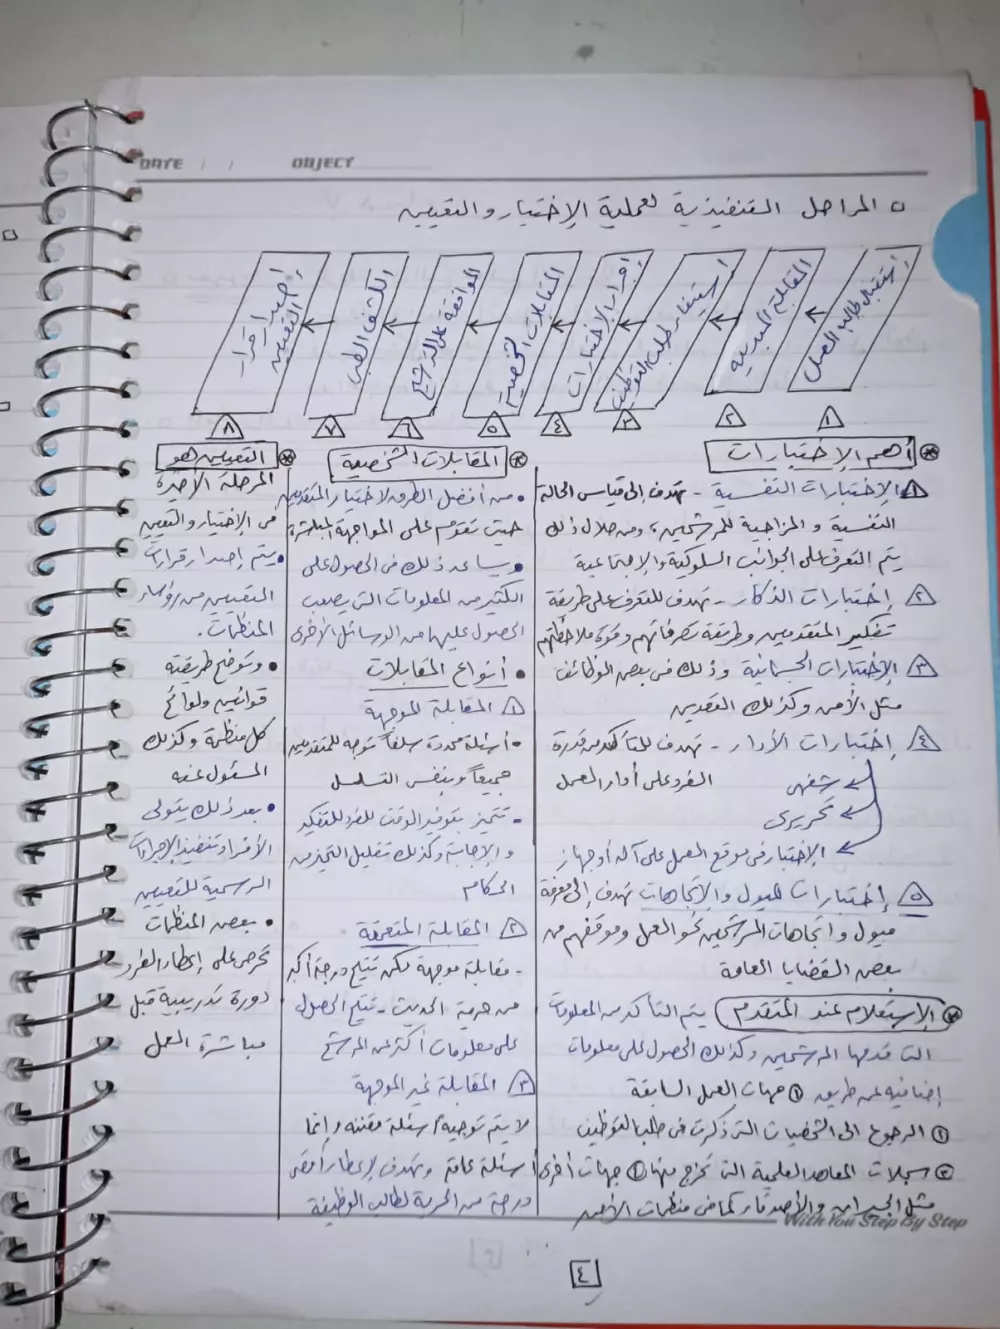 DATE / / OBJECT
المراحل التنفيذية لعملية الإختيار والتعيين
إستقبال طالب العمل
المقابلة المبدئية
إستيفاء طلب التوظيف
إجراء الإختبارات
المقابلات الشخصية
الموافقة على الترشيح
الكشف الطبى
إصدار قرار التعيين
١ ٢ ٣ ٤ ٥ ٦ ٧ ٨
أهم الإختبارات
١ الإختبارات النفسية - تهدف إلى قياس الحالة
النفسية والمزاجية للمرشحين، ومن خلال ذلك
يتم التعرف على الجوانب السلوكية والإجتماعية
٢ إختبارات الذكاء - تهدف للتعرف على طريقة
تفكير المتقدمين وطريقة تصرفاتهم وقوة ملاحظتهم
٣ الإختبارات الجسمانية وذلك فى بعض الوظائف
مثل الأمن وكذلك
٤ إختبارات الأداء - تهدف للتأكد من قدرة
الفرد على أداء العمل
شفهى
تحريرى
الإختبار فى موقع العمل على آلة أو جهاز
٥ إختبارات الميول والإتجاهات تهدف إلى معرفة
ميول واتجاهات المرشحين نحو العمل وموقفهم من
بعض القضايا العامة
الإستعلام عند المتقدم يتم التأكد من المعلومات
التى قدمها المرشحين وكذلك الحصول على معلومات
إضافية عن طريق ① جهات العمل السابقة
① الرجوع الى الشخصيات التى ذكرت فى طلب التوظيف
③ سجلات المعاهد العلمية التى تخرج منها جهات أخرى
مثل الجيران والأصدقاء كما فى منظمات الأمن
المقابلات الشخصية
• من أفضل الطرق لاختيار المتقدمين
حيث تقوم على المواجهة المباشرة
• ويساعد ذلك فى الحصول على
الكثير من المعلومات التى يصعب
الحصول عليها من الوسائل الأخرى
• أنواع المقابلات
١ المقابلة الموجهة
• أسئلة محددة سلفاً توجه للمتقدمين
جميعاً وبنفس التسلسل
- تتميز بتوفير الوقت للفرد للتفكير
والإجابة وكذلك تقليل التحيز من
الحكام
٢ المقابلة المتعمقة
- مقابلة موجهة لكن تتيح درجة أكبر
من حرية الحديث - تتيح الحصول
على معلومات أكثر عن المرشح
٣ المقابلة غير الموجهة
لا يتم توجية أسئلة مقننه وإنما
أسئلة عامة وتهدف لإعطاء أقصى
درجة من الحرية لطالب الوظيفة
التعيين هو
المرحلة الأخيرة
فى الإختيار والتعيين
• يتم إصدار قرارات
التعيين من رؤساء
المنظمات.
• وتوضح طريقته
قوانين ولوائح
كل منظمة وكذلك
المسئول عنه
• بعد ذلك يتولى
الأفراد تنفيذ الإجراءات
الرسمية للتعيين
• بعض المنظمات
تحرص على إعطاء الفرد
دورة تدريبية قبل
مباشرة العمل
With You Step By Step
٤